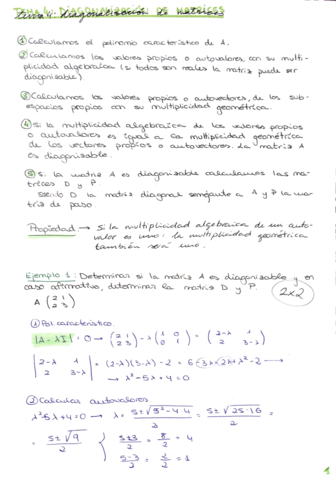 Tema 4: diagonalización de matrices
① Calculamos el polinomio característico de A.
② Calculamos los valores propios o autovalores con su multi-
plicidad algebraica (si todos son reales la matriz puede ser
diagonizable).
③ Calculamos los vectores propios o autovectores, de los sub-
espacios propios con su multiplicidad geométrica.
④ Si la multiplicidad algebraica de los valores propios
o autovalores es igual a la multiplicidad geométrica
de los vectores propios o autovectores. La matriz A
es diagonizable.
⑤ Si la matriz A es diagonizable calculamos las ma-
trices D y P.
siendo D la matriz diagonal semejante a A y P la ma-
triz de paso.
Propiedad → Si la multiplicidad algebraica de un auto-
valor es uno: la multiplicidad geométrica
también será uno.
Ejemplo 1: Determinar si la matriz A es diagonizable y en
caso afirmativo, determinar la matriz D y P.
A (2 1 / 2 3) 2x2
① Pol. característico
|A - λI| = 0 → (2 1 / 2 3) - λ (1 0 / 0 1) = (2-λ 1 / 2 3-λ)
|2-λ 1 / 2 3-λ| = (2-λ)(3-λ) - 2 = 6 - 3λ - 2λ + λ² - 2 →
→ λ² - 5λ + 4 = 0
② Calcular autovalores
λ² - 5λ + 4 = 0 → λ = 5 ± √5² - 4·4 / 2 = 5 ± √25 - 16 / 2 =
= 5 ± √9 / 2 { 5+3 / 2 = 8 / 2 = 4
5-3 / 2 = 2 / 2 = 1
1